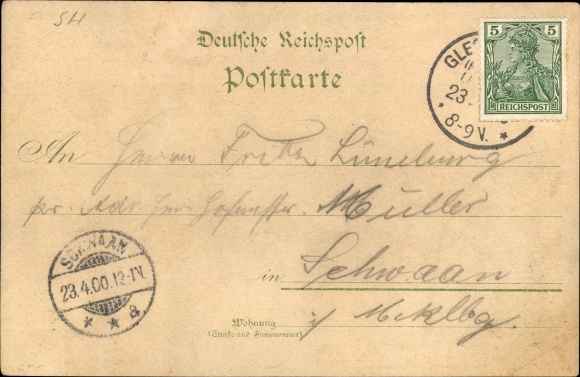 SH
Deutsche Reichspost
Postkarte
5 5
REICHSPOST
GLES
23.
8-9V.
An Herrn Fritz Lüneburg
pr. Adr. Herr Müller
in Schwaan
i/ Mcklbg.
SCHWAAN
23.4.00.12-1N.
a
Wohnung
(Straße und Hausnummer)